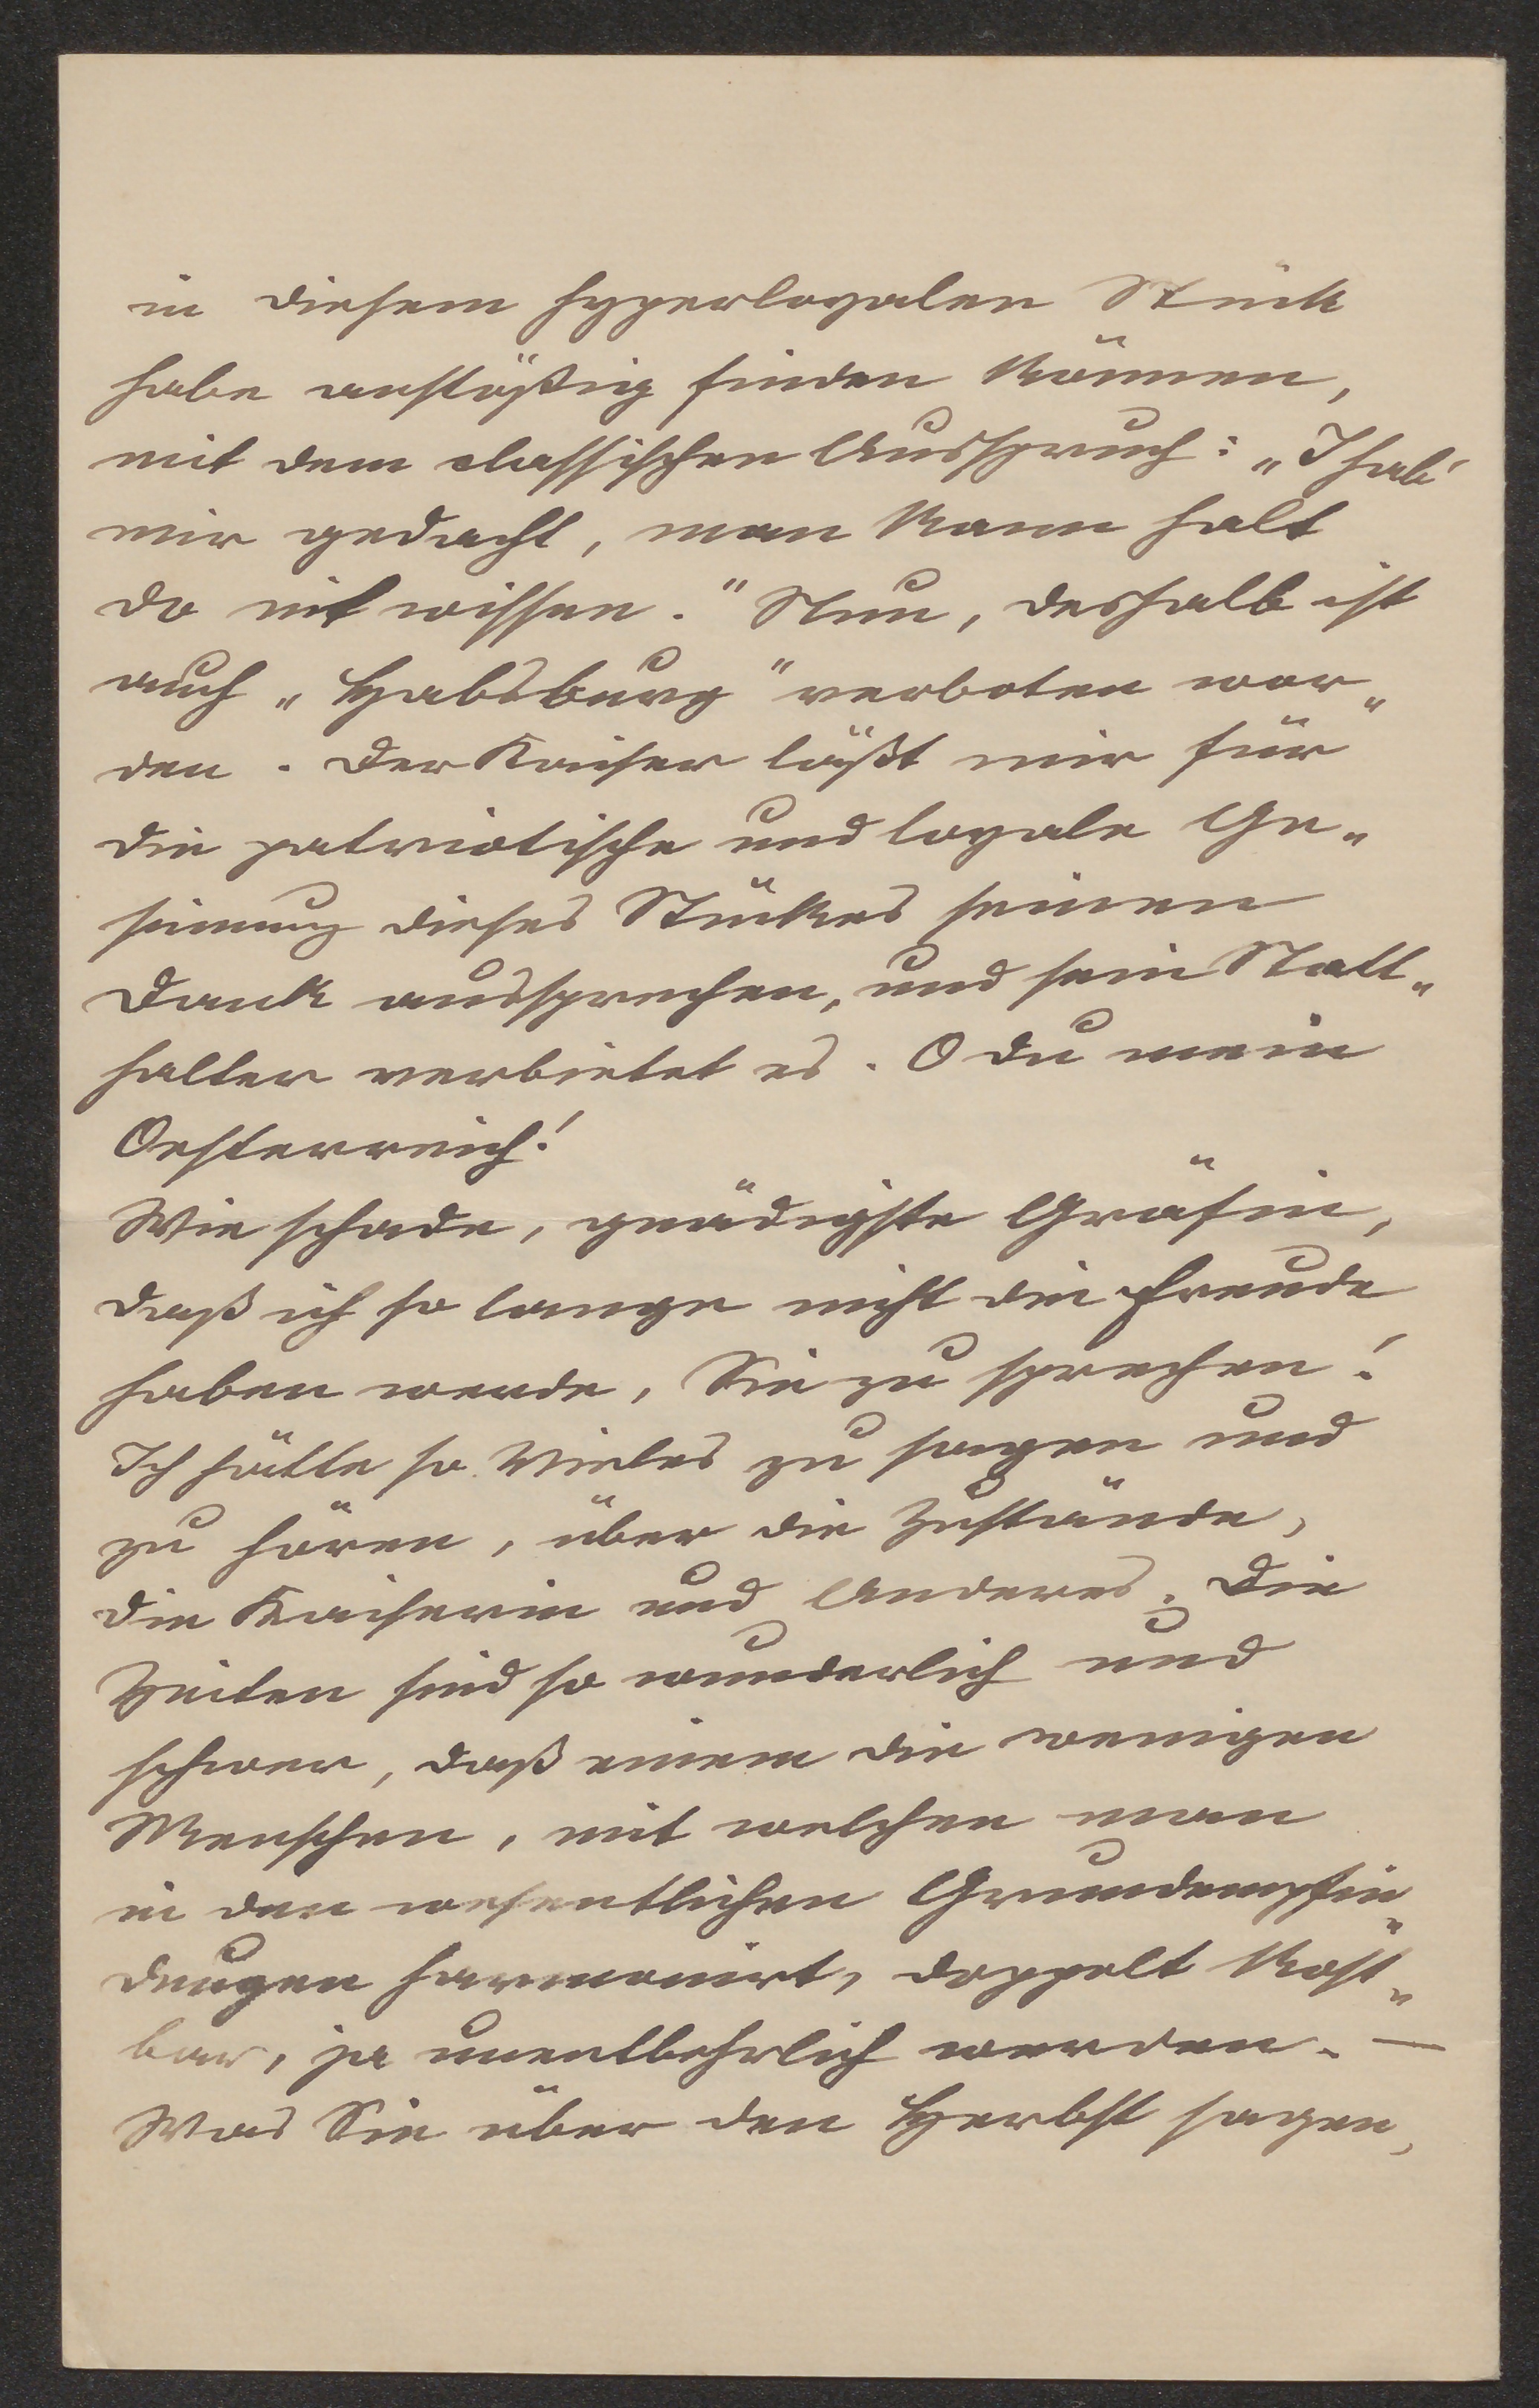 in diesem hyperloyalen Stück
habe anstößig finden können,
mit dem classischen Ausspruch: „I hab'
mir gedacht, man kann halt
do nit wissen." Nun, deshalb ist
auch „Habsburg" verboten wor„
den. Der Kaiser läßt mir für
die patriotische und loyale Ge„
sinnung dieses Stückes seinen
Dank aussprechen, und sein Statt„
halter verbietet es. O du mein
Oesterreich!
Wie schade, gnädigste Gräfin,
daß ich so lange nicht die Freude
haben werde, Sie zu sprechen!
Ich hätte so Vieles zu sagen und
zu hören, über die Zustände,
die Kaiserin und Anderes. Die
Zeiten sind so wunderlich und
schwer, daß einem die wenigen
Menschen, mit welchen man
in den wesentlichen Grundempfin„
dungen harmonirt, doppelt kost„
bar, ja unentbehrlich werden. —
Was Sie über den Herbst sagen,